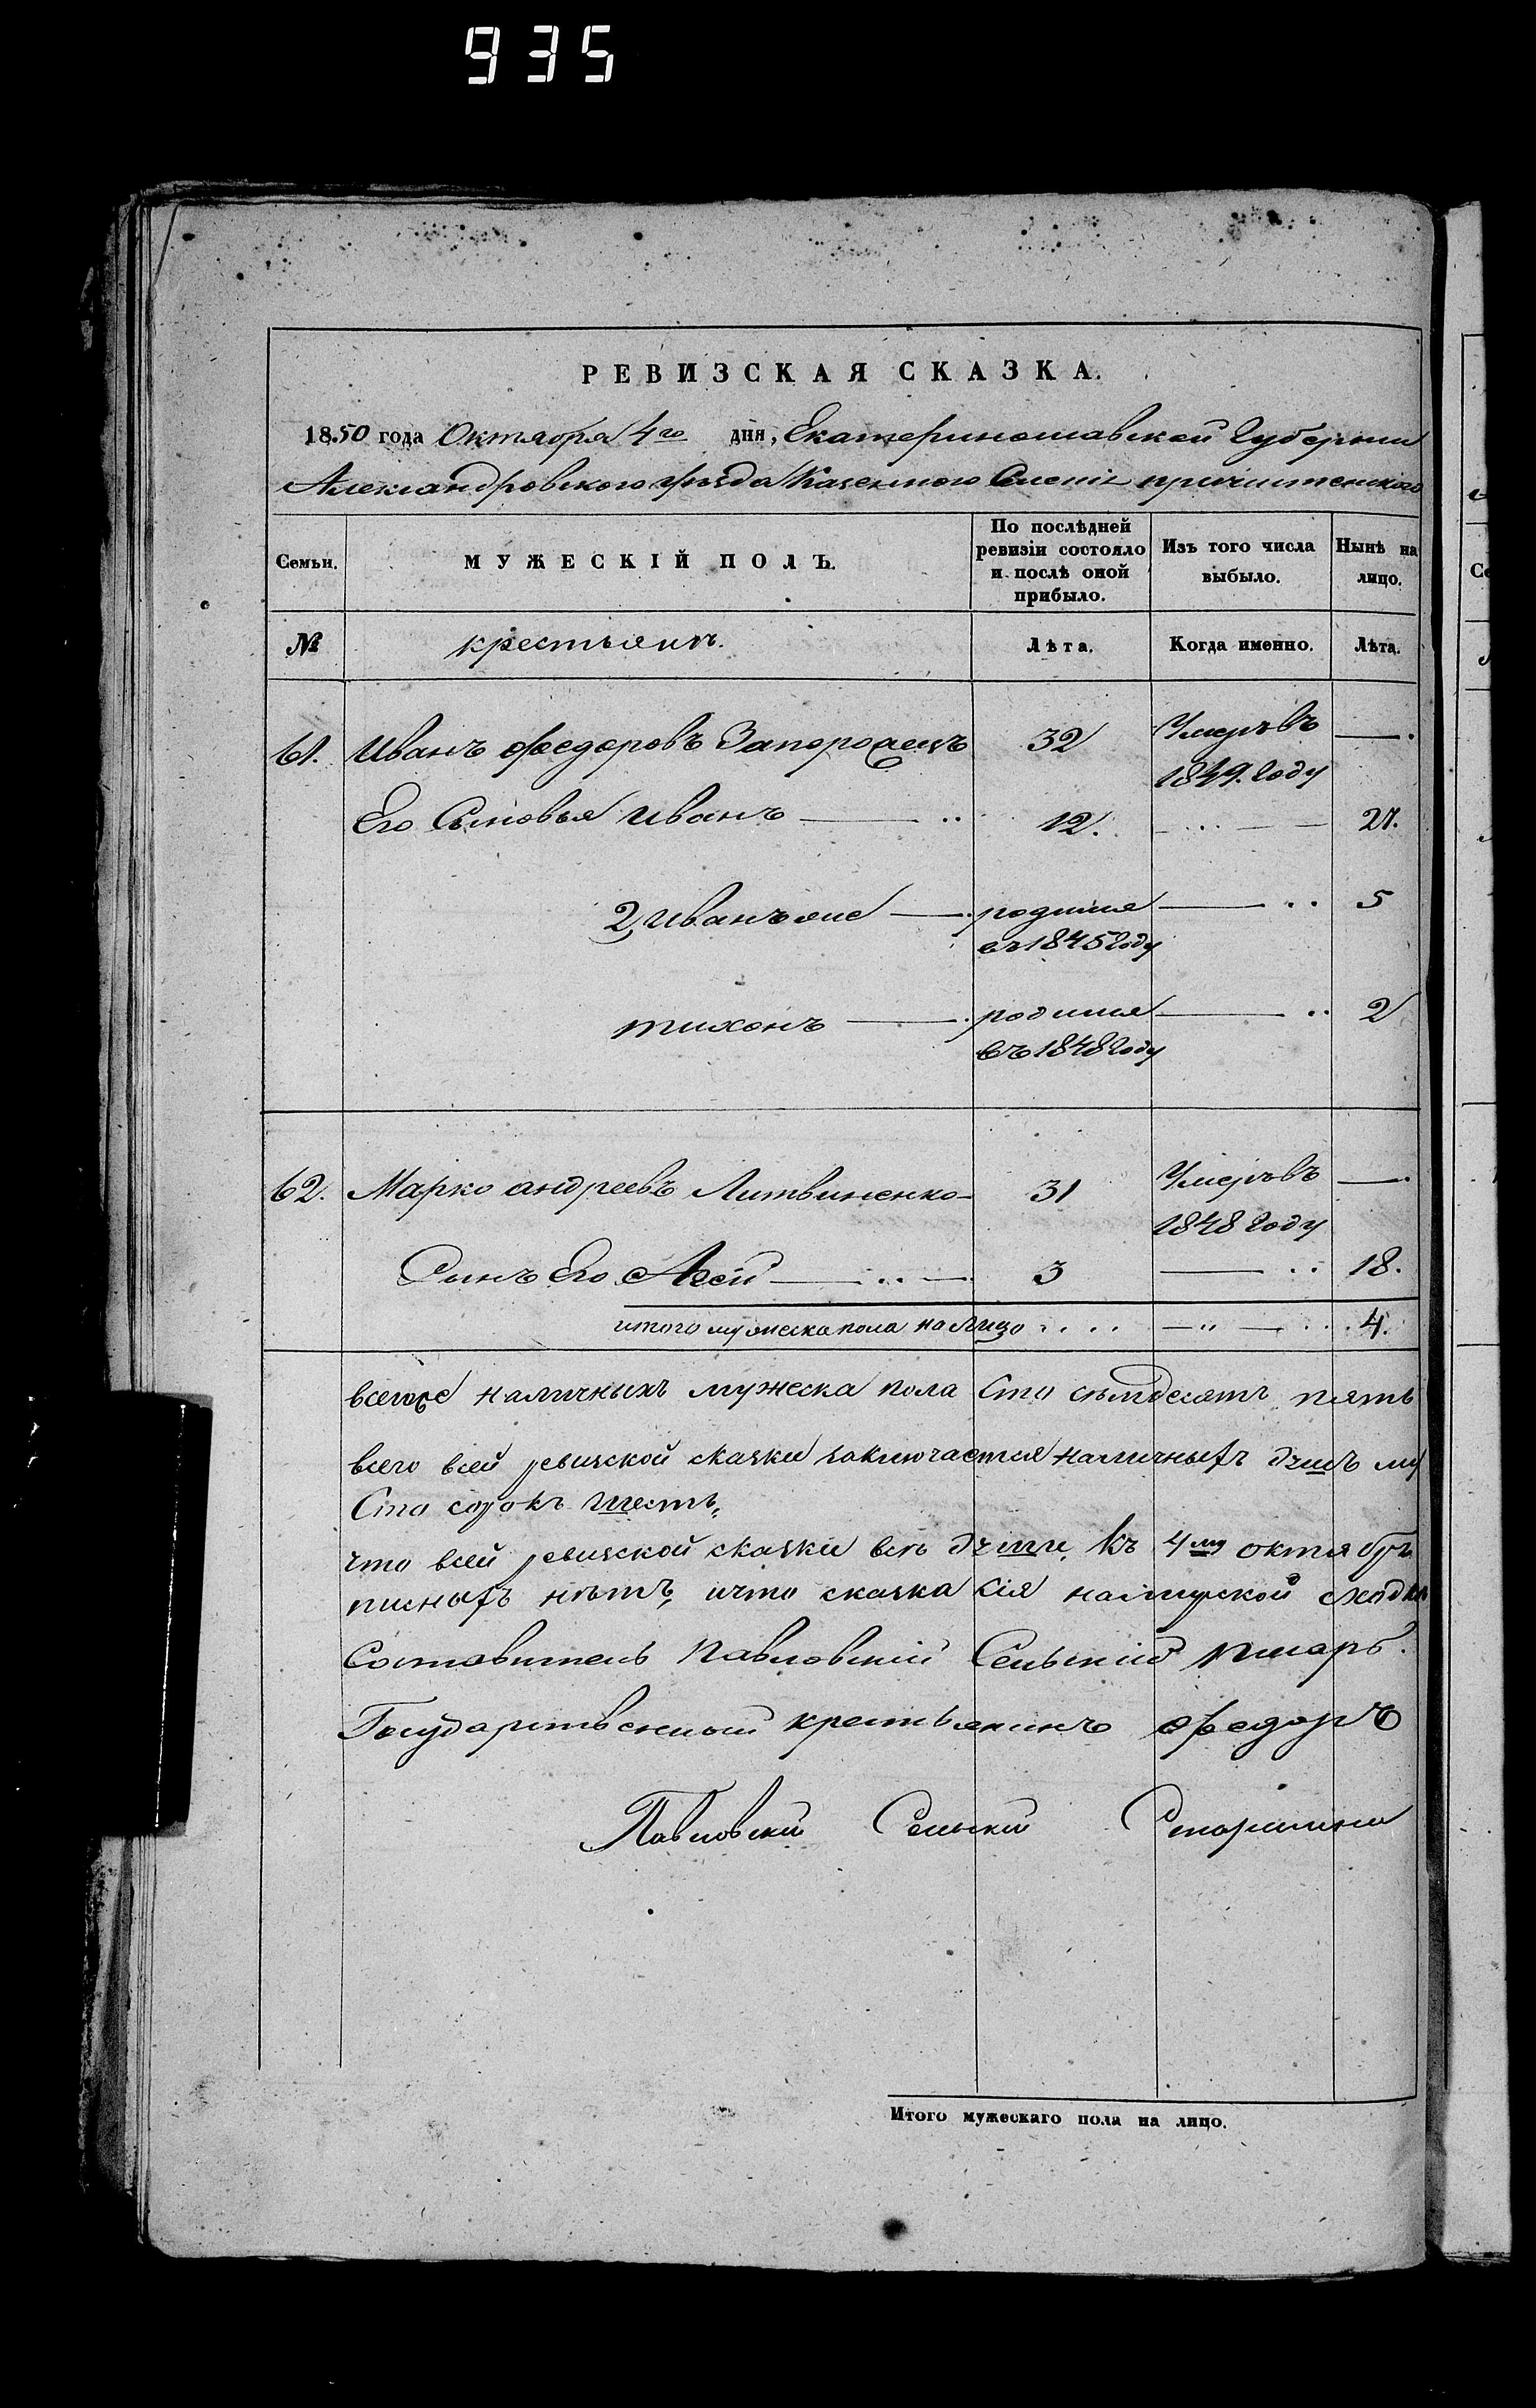 935
РЕВИЗСКАЯ СКАЗКА.
1850 года Октября 4го дня, Екатеринославской Губернии
Александровского уезда Казенного Селения пречистенского
Семьи. МУЖЕСКІЙ ПОЛЪ. По послѣдней ревизіи состояло и послѣ оной прибыло. Изъ того числа выбыло. Нынѣ на лицо.
№ крестьянъ. Лѣта. Когда именно. Лѣта.
61. Иванъ Федоровъ Запорожецъ 32 Умеръ въ 1849. Году —.
Его Сыновья Иванъ — 12. — 27.
2, Иванъ же — родился въ 1845 Году — 5
тихонъ — родился въ 1848 Году — 2
62. Марко андреевъ Литвиненко 31 Умеръ въ 1848 Году —.
Сынъ Его Агей — 3 — 18.
итого мужеска пола на лицо . . . . — 4.
всегоже наличныхъ мужеска пола Сто семдесятъ пять
всего всей ревизской сказки заключается наличныхъ душъ му
Сто сорокъ шесть,
что всей ревизской сказки всѣ души, къ 4му октября
писныхъ нѣтъ, ичто сказка сія намирской сходк
Составитель Павловскій Сельский писарь.
Государственный крестьянинъ Федоръ
Павловски Сельски Старшина
Итого мужескаго пола на лицо.